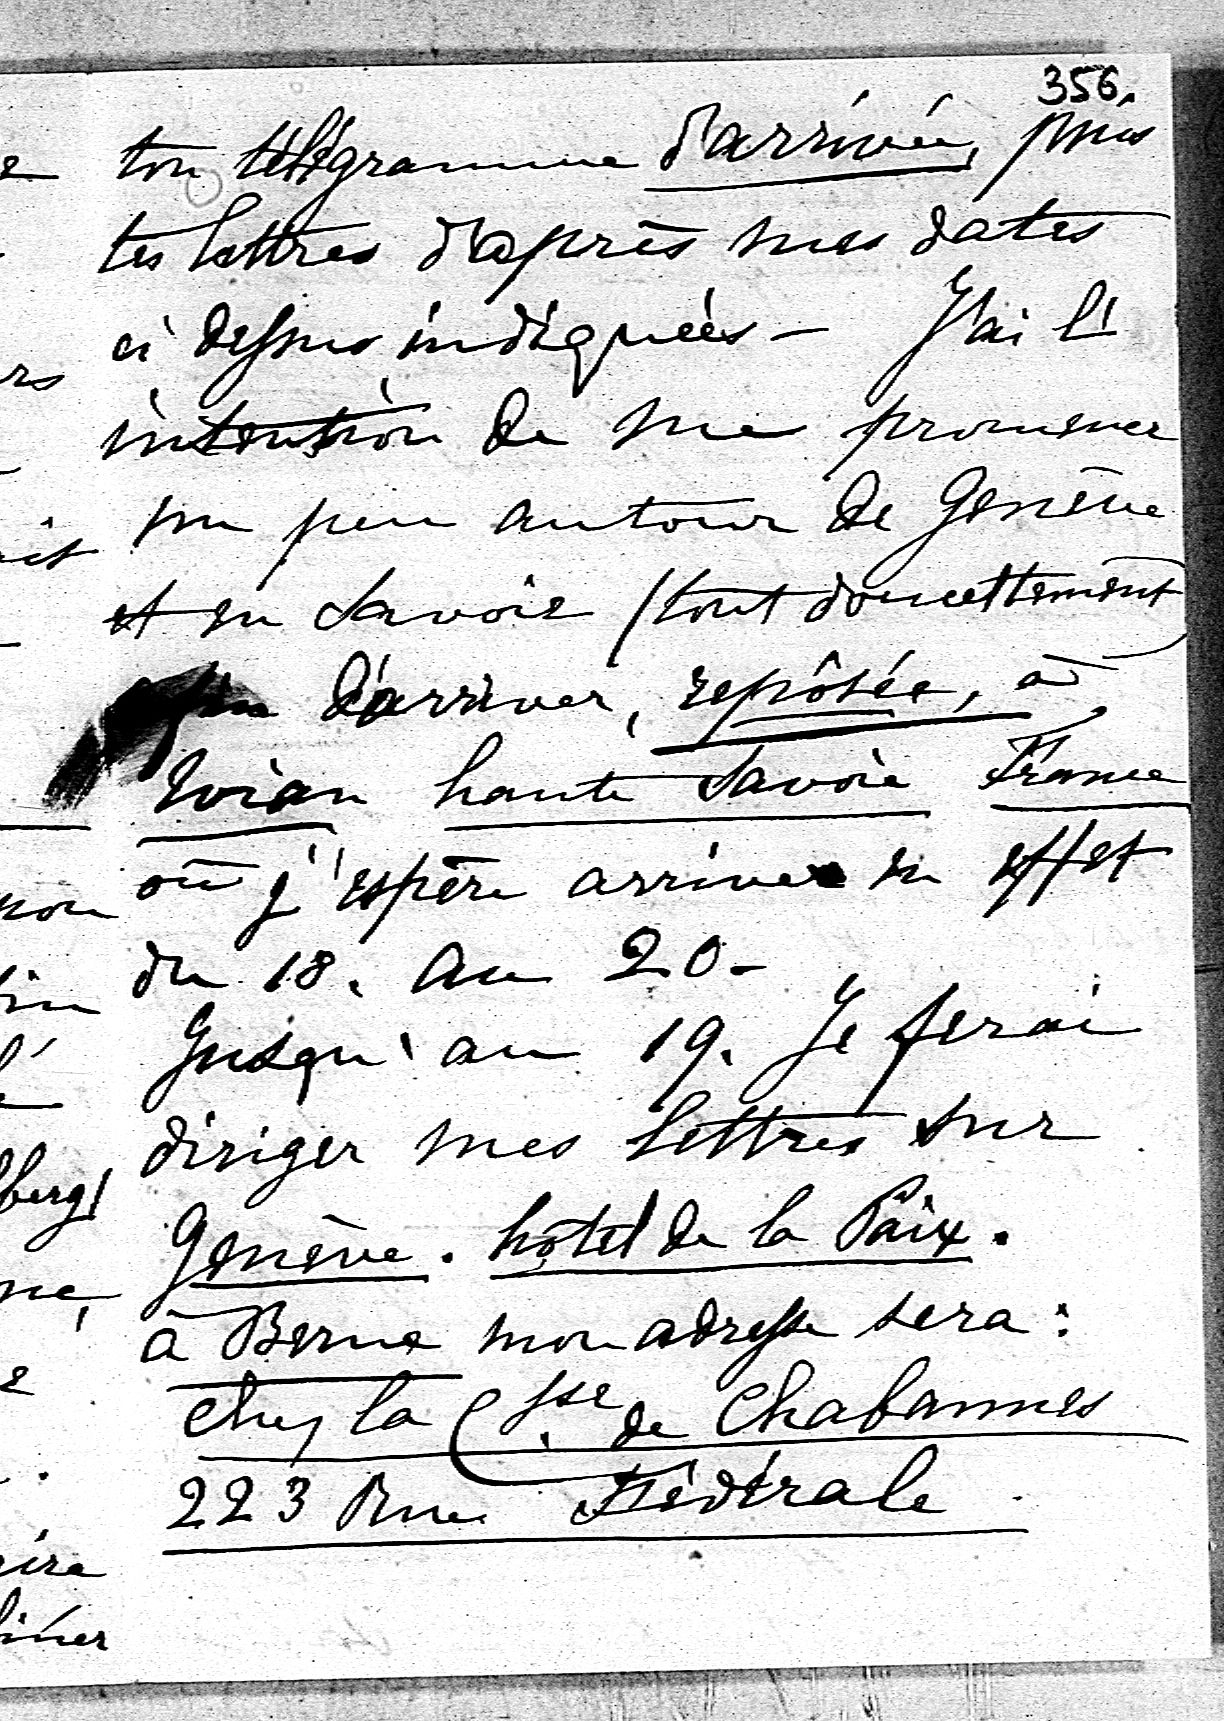 356.
ton télégramme d'arrivée, puis
tes lettres d'après mes dates
ci dessus indiquées – J'ai l'
intention de me promener
un peu autour de Genève
et en Savoie (tout doucettement)
afin d'arriver, repôsée, à
Evian haute Savoie France
où j'espère arriver en effet
du 18. au 20 –
Jusqu'au 19. Je ferai
diriger mes lettres sur
Genève. hôtel de la Paix.
à Berne mon adresse sera :
chez la Csse. de Chabannes
223 Rue Fédérale